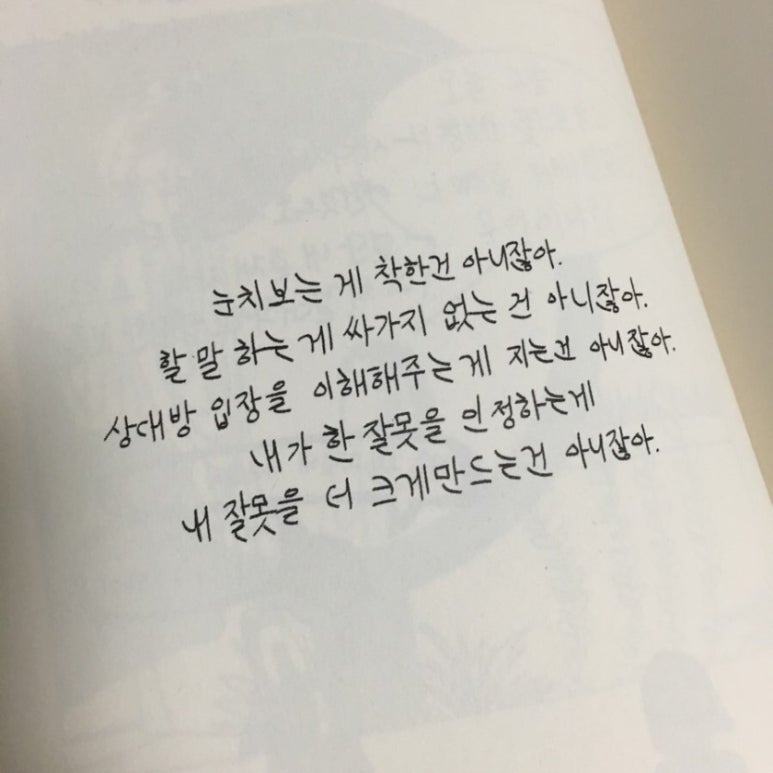 눈치보는 게 착한건 아니잖아.
할 말 하는 게 싸가지 없는 건 아니잖아.
상대방 입장을 이해해주는 게 지는건 아니잖아.
내가 한 잘못을 인정하는게
내 잘못을 더 크게만드는건 아니잖아.